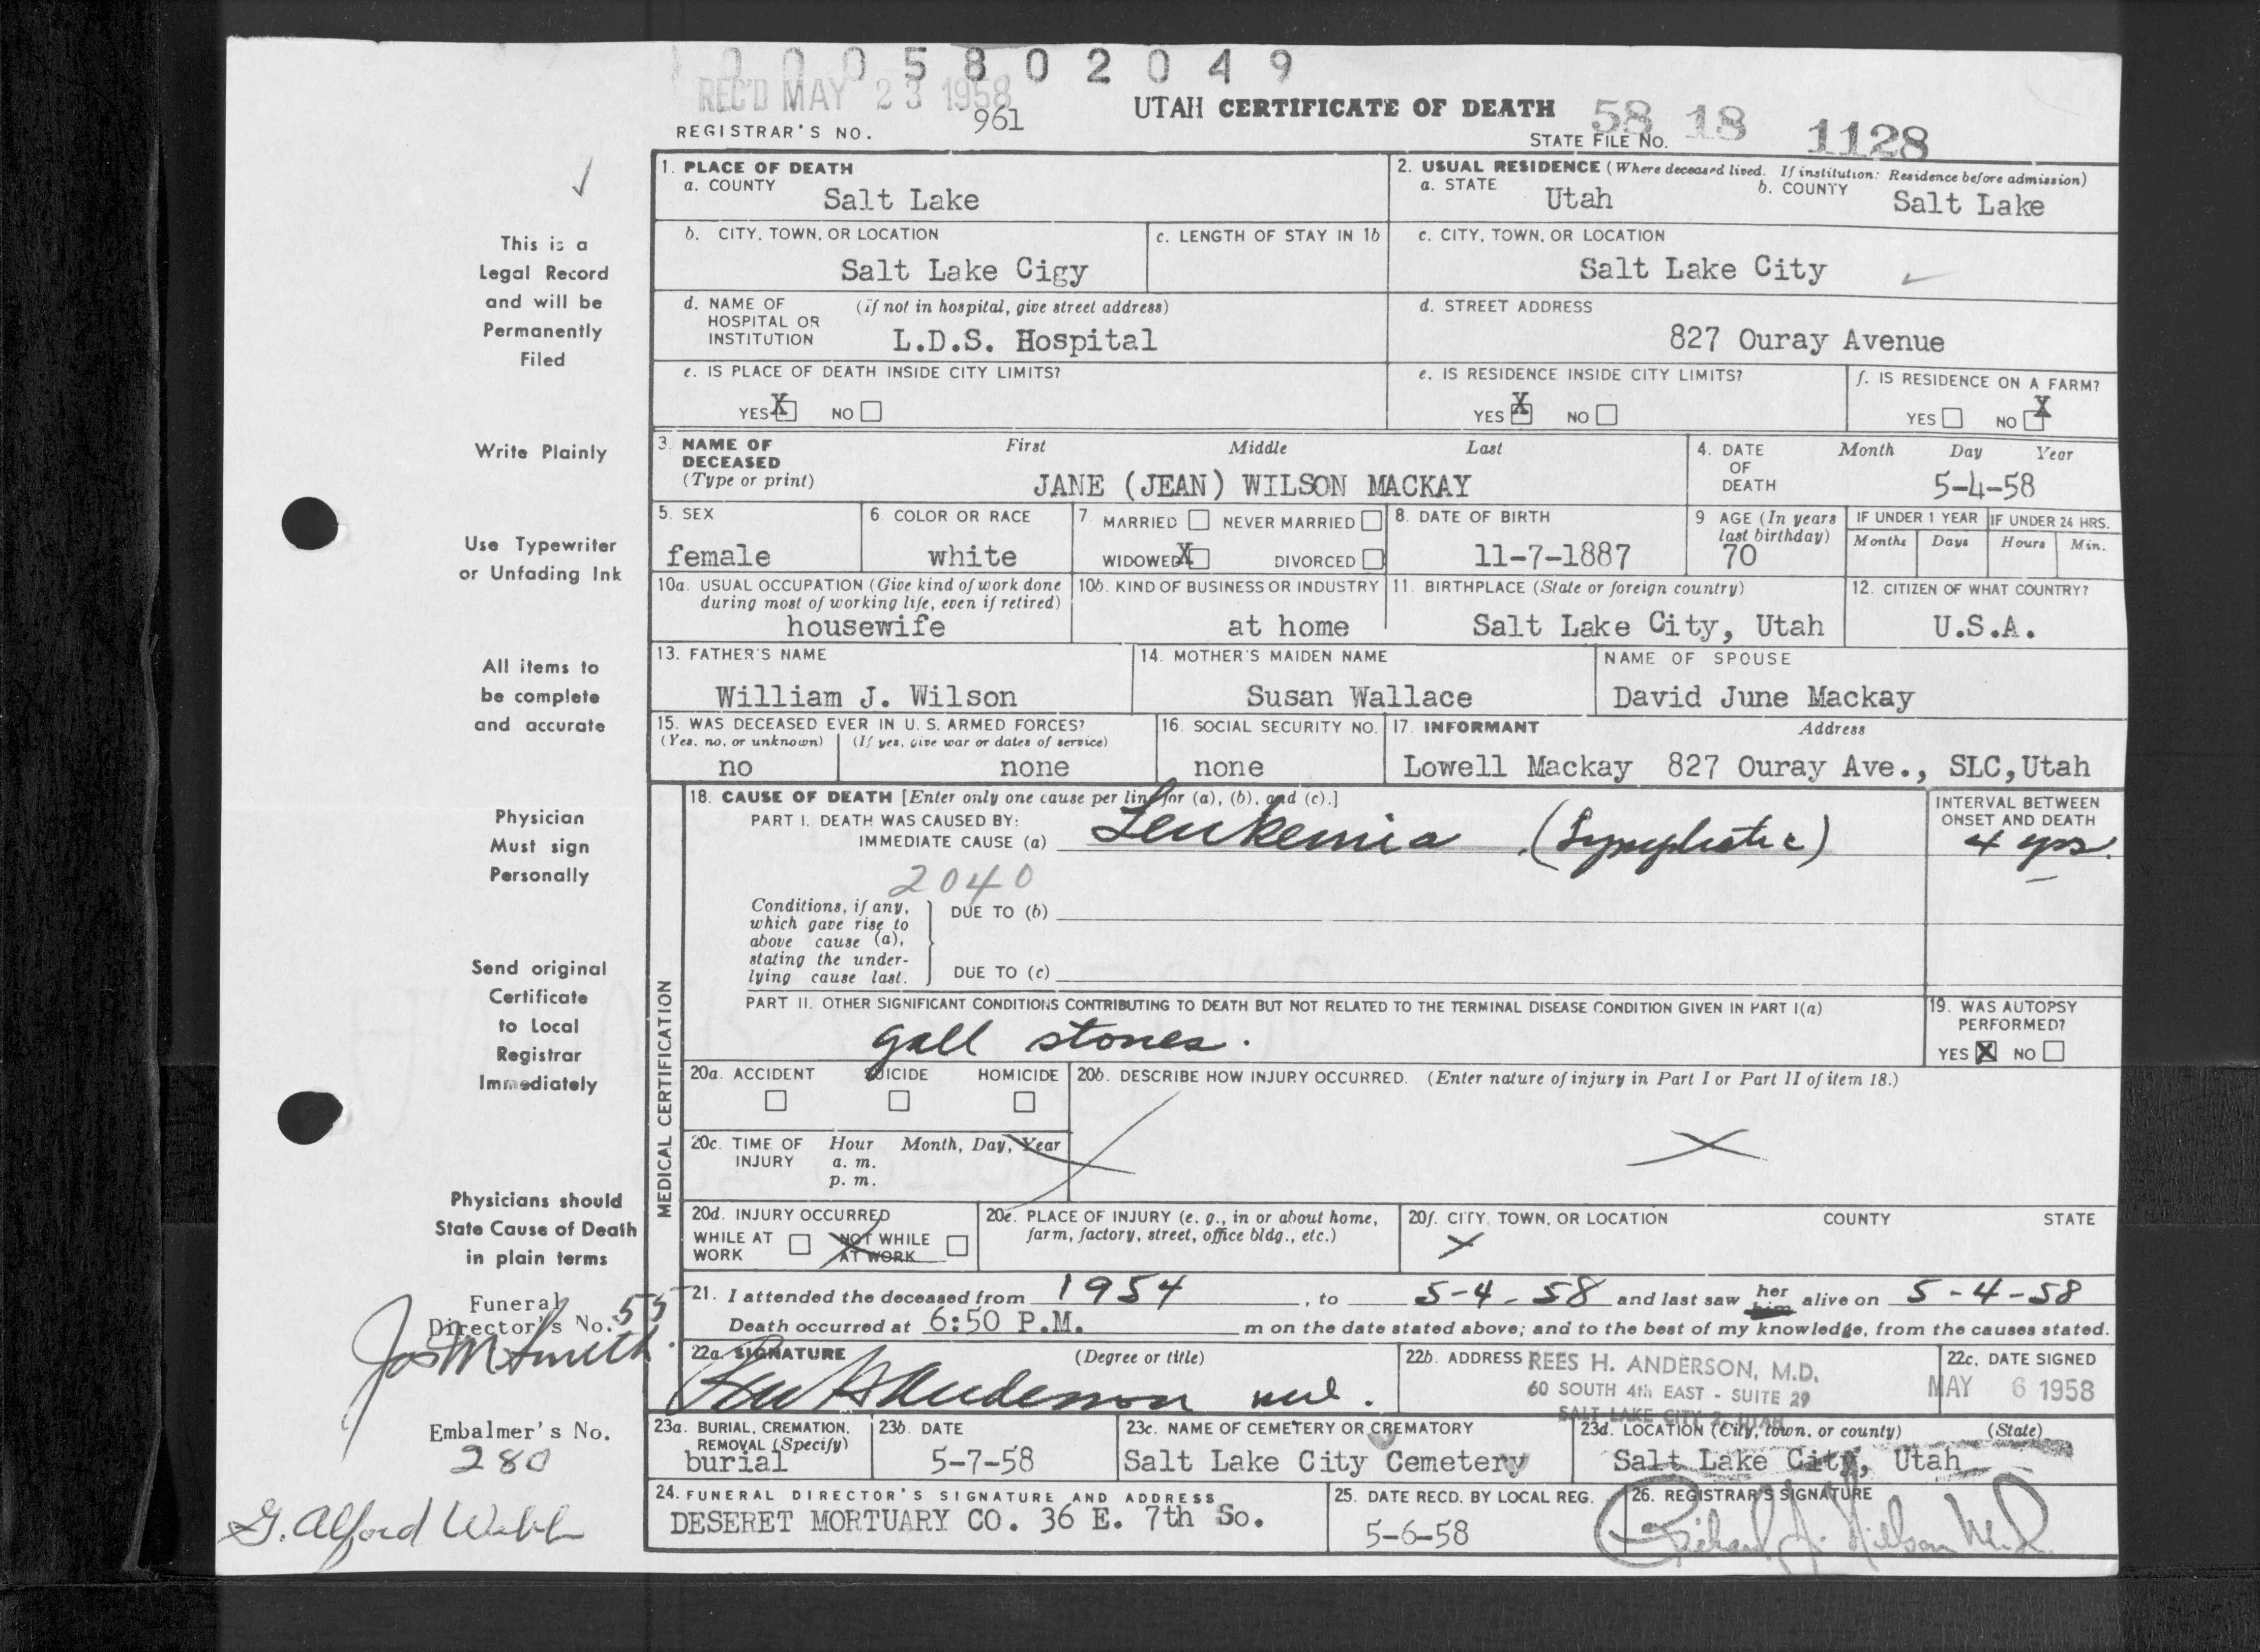 0 0 0 5 8 0 2 0 4 9
REC'D MAY 23 1958
UTAH CERTIFICATE OF DEATH
REGISTRAR'S NO. 961
STATE FILE NO. 58 18 1128
1. PLACE OF DEATH
a. COUNTY Salt Lake
2. USUAL RESIDENCE (Where deceased lived. If institution: Residence before admission)
a. STATE Utah b. COUNTY Salt Lake
b. CITY, TOWN, OR LOCATION Salt Lake Cigy
c. LENGTH OF STAY IN 1b
c. CITY, TOWN, OR LOCATION Salt Lake City
d. NAME OF HOSPITAL OR INSTITUTION (if not in hospital, give street address) L.D.S. Hospital
d. STREET ADDRESS 827 Ouray Avenue
e. IS PLACE OF DEATH INSIDE CITY LIMITS?
YES X NO
e. IS RESIDENCE INSIDE CITY LIMITS?
YES X NO
f. IS RESIDENCE ON A FARM?
YES NO X
3. NAME OF DECEASED (Type or print) First Middle Last
JANE (JEAN) WILSON MACKAY
4. DATE OF DEATH Month Day Year
5-4-58
5. SEX female
6. COLOR OR RACE white
7. MARRIED NEVER MARRIED
WIDOWED X DIVORCED
8. DATE OF BIRTH 11-7-1887
9 AGE (In years last birthday) 70
IF UNDER 1 YEAR Months Days
IF UNDER 24 HRS. Hours Min.
10a. USUAL OCCUPATION (Give kind of work done during most of working life, even if retired) housewife
10b. KIND OF BUSINESS OR INDUSTRY at home
11. BIRTHPLACE (State or foreign country) Salt Lake City, Utah
12. CITIZEN OF WHAT COUNTRY? U.S.A.
13. FATHER'S NAME William J. Wilson
14. MOTHER'S MAIDEN NAME Susan Wallace
NAME OF SPOUSE David June Mackay
15. WAS DECEASED EVER IN U. S. ARMED FORCES?
(Yes, no, or unknown) no
(If yes, give war or dates of service) none
16. SOCIAL SECURITY NO. none
17. INFORMANT Address
Lowell Mackay 827 Ouray Ave., SLC, Utah
MEDICAL CERTIFICATION
18. CAUSE OF DEATH [Enter only one cause per line for (a), (b), and (c).]
PART I. DEATH WAS CAUSED BY:
IMMEDIATE CAUSE (a) Leukemia (Lymphatic)
INTERVAL BETWEEN ONSET AND DEATH
4 yrs.
2040
Conditions, if any, which gave rise to above cause (a), stating the underlying cause last.
DUE TO (b)
DUE TO (c)
PART II. OTHER SIGNIFICANT CONDITIONS CONTRIBUTING TO DEATH BUT NOT RELATED TO THE TERMINAL DISEASE CONDITION GIVEN IN PART I(a)
gall stones.
19. WAS AUTOPSY PERFORMED?
YES X NO
20a. ACCIDENT SUICIDE HOMICIDE
20b. DESCRIBE HOW INJURY OCCURRED. (Enter nature of injury in Part I or Part II of item 18.)
20c. TIME OF INJURY Hour Month, Day, Year
a. m.
p. m.
20d. INJURY OCCURRED
WHILE AT WORK NOT WHILE AT WORK
20e. PLACE OF INJURY (e. g., in or about home, farm, factory, street, office bldg., etc.)
20f. CITY, TOWN, OR LOCATION COUNTY STATE
21. I attended the deceased from 1954, to 5-4-58 and last saw her him alive on 5-4-58
Death occurred at 6:50 P.M. m on the date stated above; and to the best of my knowledge, from the causes stated.
22a. SIGNATURE (Degree or title)
Rees H Anderson md.
22b. ADDRESS REES H. ANDERSON, M.D.
60 SOUTH 4th EAST - SUITE 29
SALT LAKE CITY 2, UTAH
22c. DATE SIGNED
MAY 6 1958
23a. BURIAL, CREMATION, REMOVAL (Specify) burial
23b. DATE 5-7-58
23c. NAME OF CEMETERY OR CREMATORY Salt Lake City Cemetery
23d. LOCATION (City, town, or county) (State)
Salt Lake City, Utah
24. FUNERAL DIRECTOR'S SIGNATURE AND ADDRESS
DESERET MORTUARY CO. 36 E. 7th So.
25. DATE RECD. BY LOCAL REG.
5-6-58
26. REGISTRAR'S SIGNATURE
This is a
Legal Record
and will be
Permanently
Filed
Write Plainly
Use Typewriter
or Unfading Ink
All items to
be complete
and accurate
Physician
Must sign
Personally
Send original
Certificate
to Local
Registrar
Immediately
Physicians should
State Cause of Death
in plain terms
Funeral
Director's No. 55
Jos M Smith
Embalmer's No.
280
G. Alford Webb